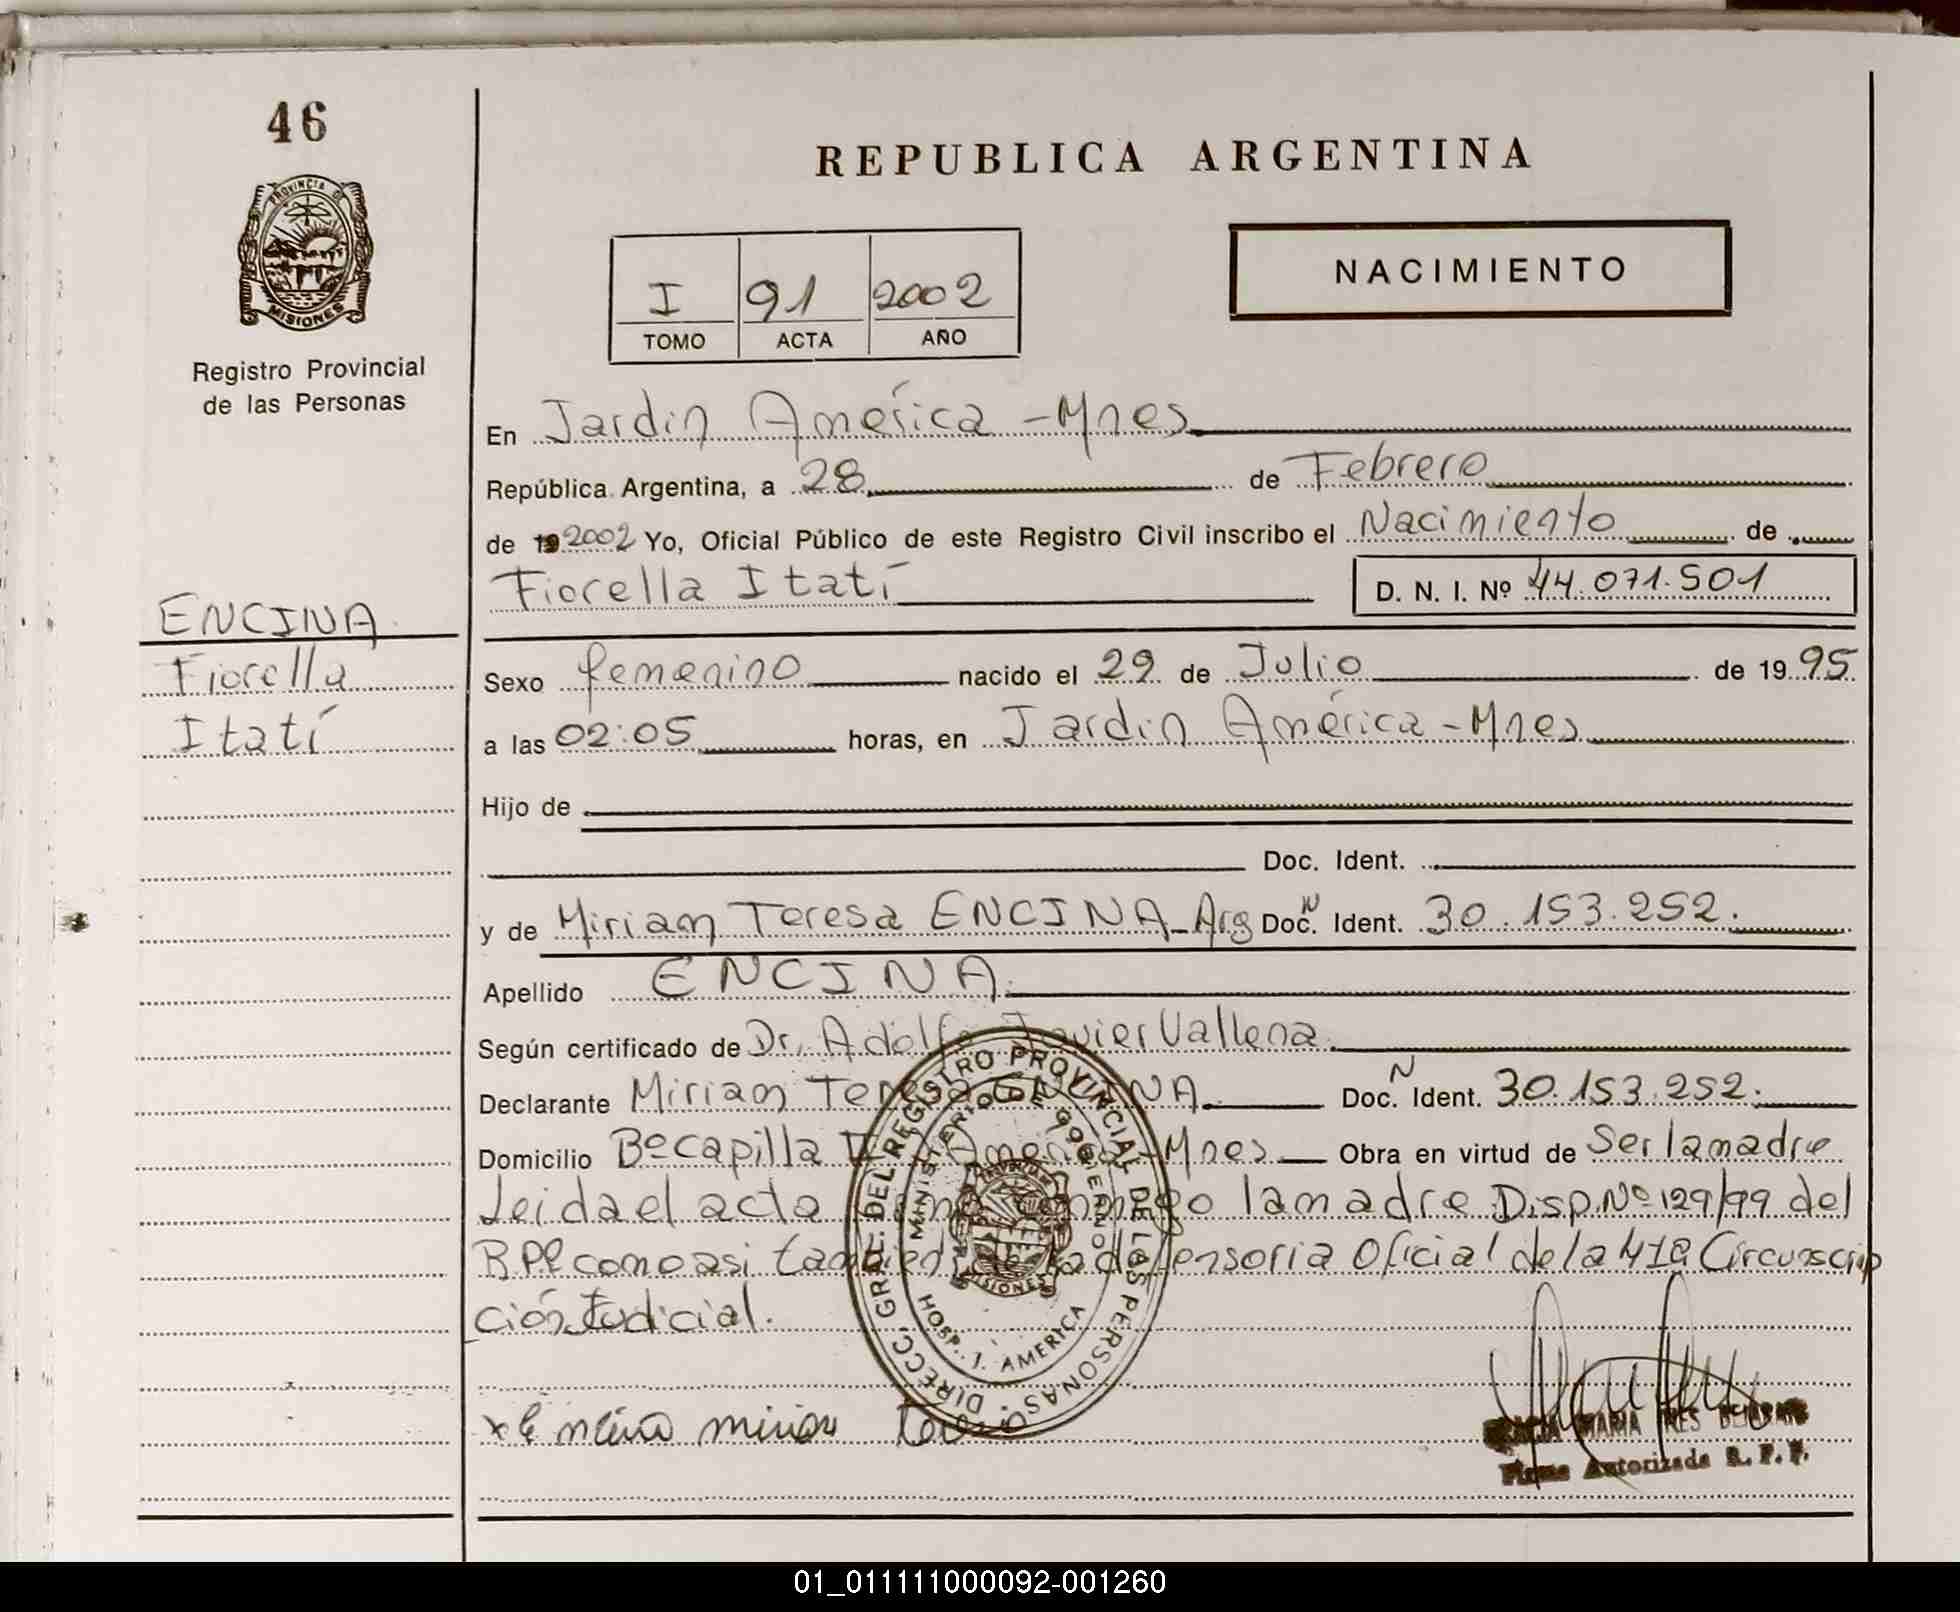 46
PROVINCIA DE
MISIONES
Registro Provincial
de las Personas
REPUBLICA ARGENTINA
NACIMIENTO
I 91 2002
TOMO ACTA AÑO
En Jardin América - Mnes
República Argentina, a 28 de Febrero
de 19 2002 Yo, Oficial Público de este Registro Civil inscribo el Nacimiento de
Fiorella Itatí D. N. I. Nº 44.071.501
ENCINA
Fiorella
Itatí
Sexo femenino nacido el 29 de Julio de 19 95
a las 02:05 horas, en Jardin América - Mnes
Hijo de
Doc. Ident.
y de Miriam Teresa ENCINA - Arg Doc. N Ident. 30.153.252.
Apellido ENCINA.
Según certificado de Dr. Adolfo Javier Vallena
Declarante Miriam Teresa ENCINA Doc. N Ident. 30.153.252.
Domicilio Bº Capilla J. América - Mnes Obra en virtud de Ser la madre
Leida el acta conmigo la madre Disp. Nº 129/99 del
RPP como asi tambien la defensoria Oficial de la 4ta Circunscrip
ción Judicial.
DIRECC. GRAL. DEL REGISTRO PROVINCIAL DE LAS PERSONAS
MINISTERIO DE GOBIERNO
HOSP. J. AMERICA
MISIONES
x Encina Mirian
MARIA INES
Firma Autorizada R. P. P.
01_011111000092-001260